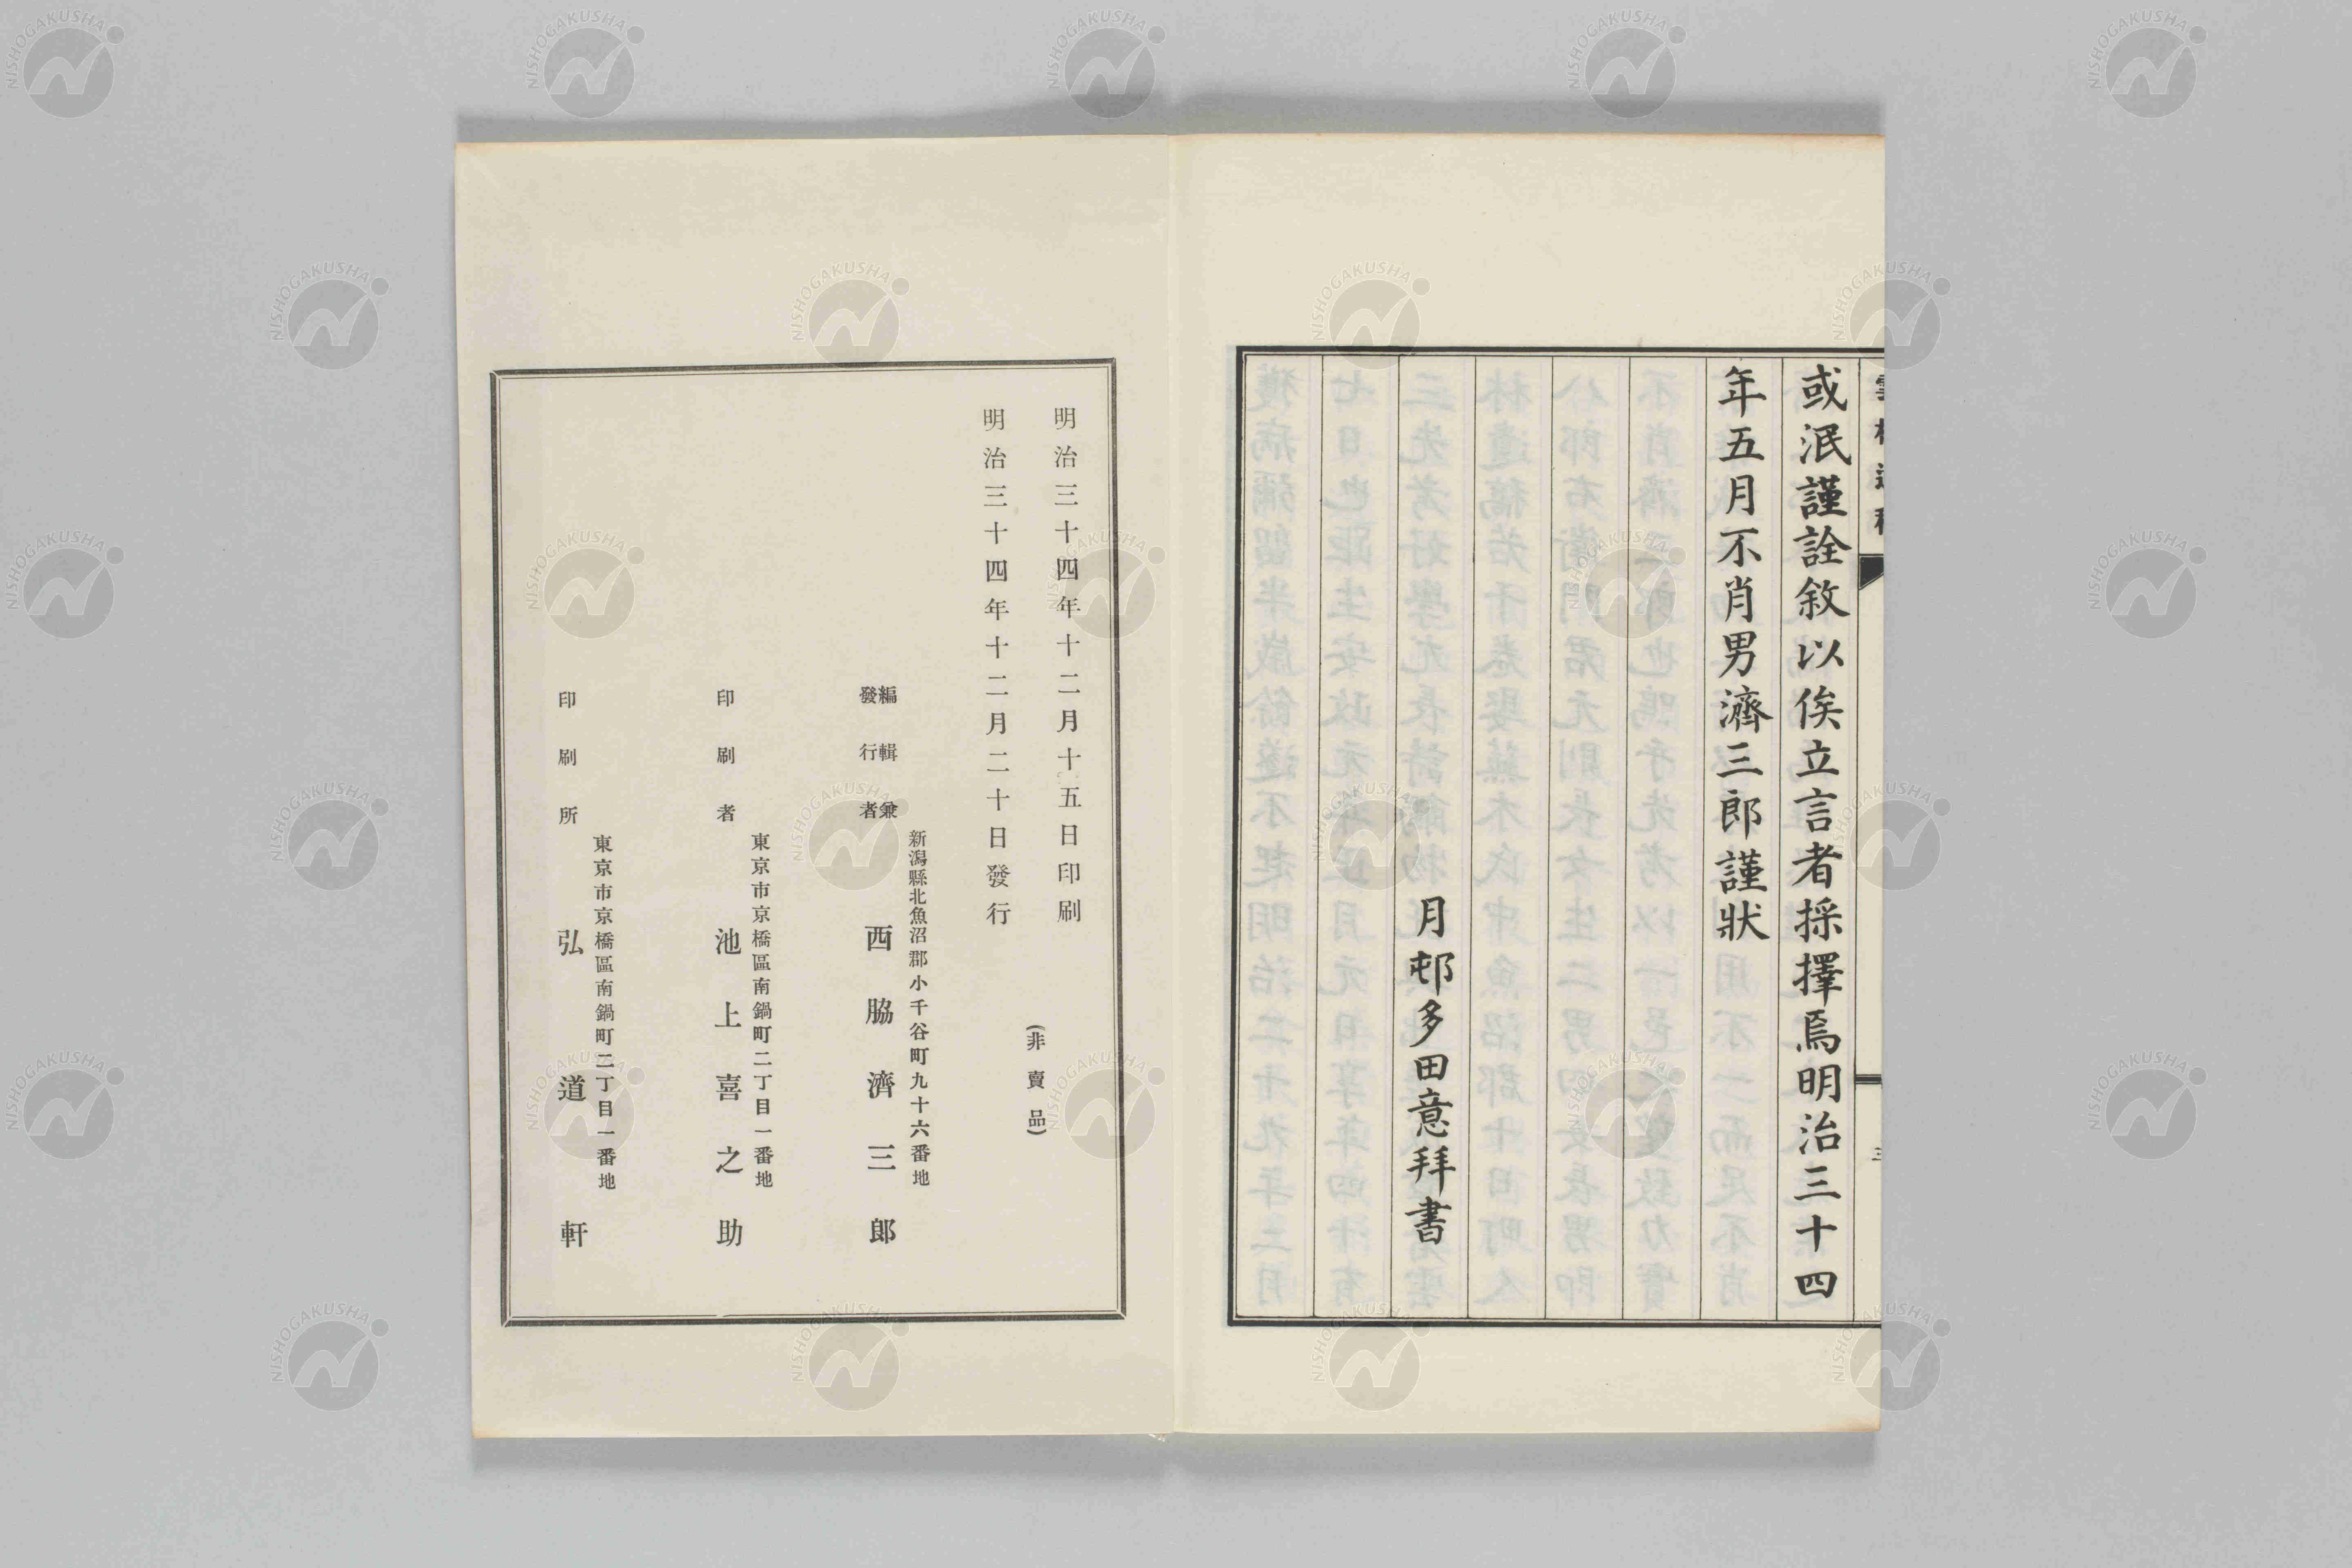 或泯謹詮敘以俟立言者採擇焉明治三十四
年五月不肖男濟三郎謹狀
月邨多田意拜書
明治三十四年十二月十五日印刷
明治三十四年十二月二十日發行
(非賣品)
編輯兼
發行者
新潟縣北魚沼郡小千谷町九十六番地
西脇濟三郎
印刷者
東京市京橋區南鍋町二丁目一番地
池上喜之助
印刷所
東京市京橋區南鍋町二丁目一番地
弘道軒
NISHOGAKUSHA